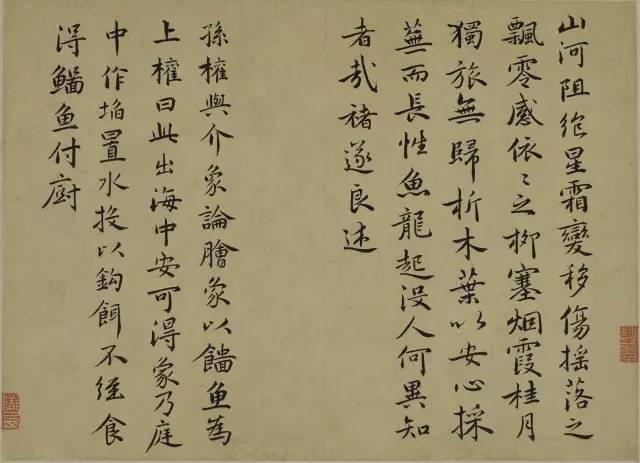 山河阻絶星霜變移傷搖落之
飄零感依〻之柳塞烟霞桂月
獨旅無歸折木葉以安心採
蕪而長性魚龍起没人何異知
者哉褚遂良述
孫權與介象論膾象以鯔魚為
上權曰此出海中安可得象乃庭
中作埳置水投以鈎餌不經食
得鯔魚付廚